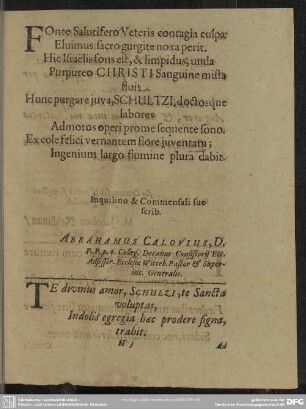 FOnte Salutifero Veteris contagia culpæ
Eluimus: sacro gurgite noxa perit.
Hic Israelis fons est, & limpidus, unda
Purpureo CHRISTI Sanguine mista
fluit.
Hunc purgare juva, SCHULTZI, doctosque
labores
Admotos operi prome sequente sono.
Excole felici vernantem flore juventam;
Ingenium largo flumine plura dabit.
Inquilino & Commensali suo
scrib.
ABRAHAMUS CALOVIUS, D.
P. P. p. t. Colleg. Decanus Consistorij Ecl.
Assessor. Ecclesiæ Witteb. Pastor & Super-
int. Generalis.
TE divinus amor, SCHULZI, te Sancta
voluptas,
Indolis egregia hæc prodere signa,
trahit.
H 3
Ad